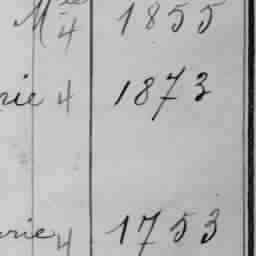 Mlle 4 1855
rie 4 1873
rie 4 1753